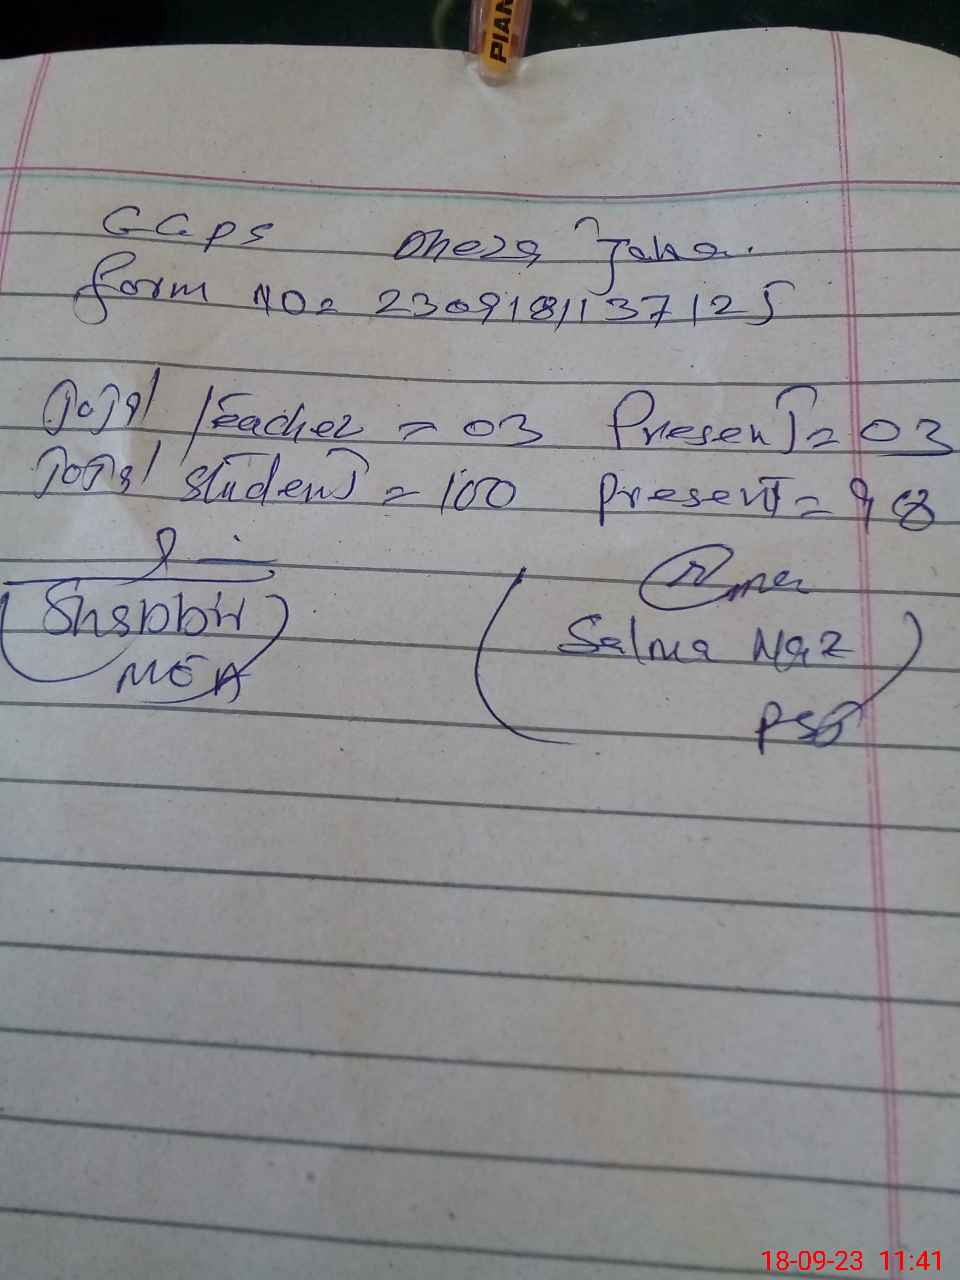 PIAN
GGPS Dhera Taha.
form NO= 2309181137125
Total Teacher = 03 Present = 03
Total student = 100 present = 98
Shabbir
MEA
Salma Naz
PST
18-09-23 11:41